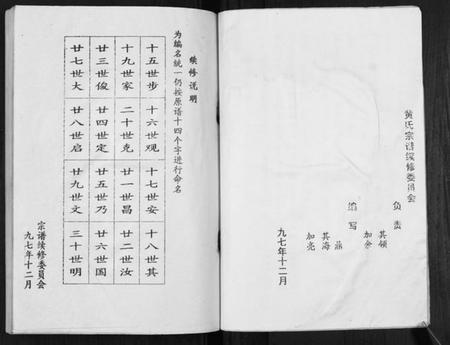 黄氏宗谱续修委员会
负责
其领
加余
编写
其海
加亮
九七年十二月
续修说明
为编名统一仍按原谱十四个字进行命名
十五世步 十六世观 十七世安 十八世其
十九世家 二十世克 廿一世昌 廿二世汝
廿三世俊 廿四世定 廿五世乃 廿六世国
廿七世大 廿八世启 廿九世文 三十世明
宗谱续修委員会
九七年十二月